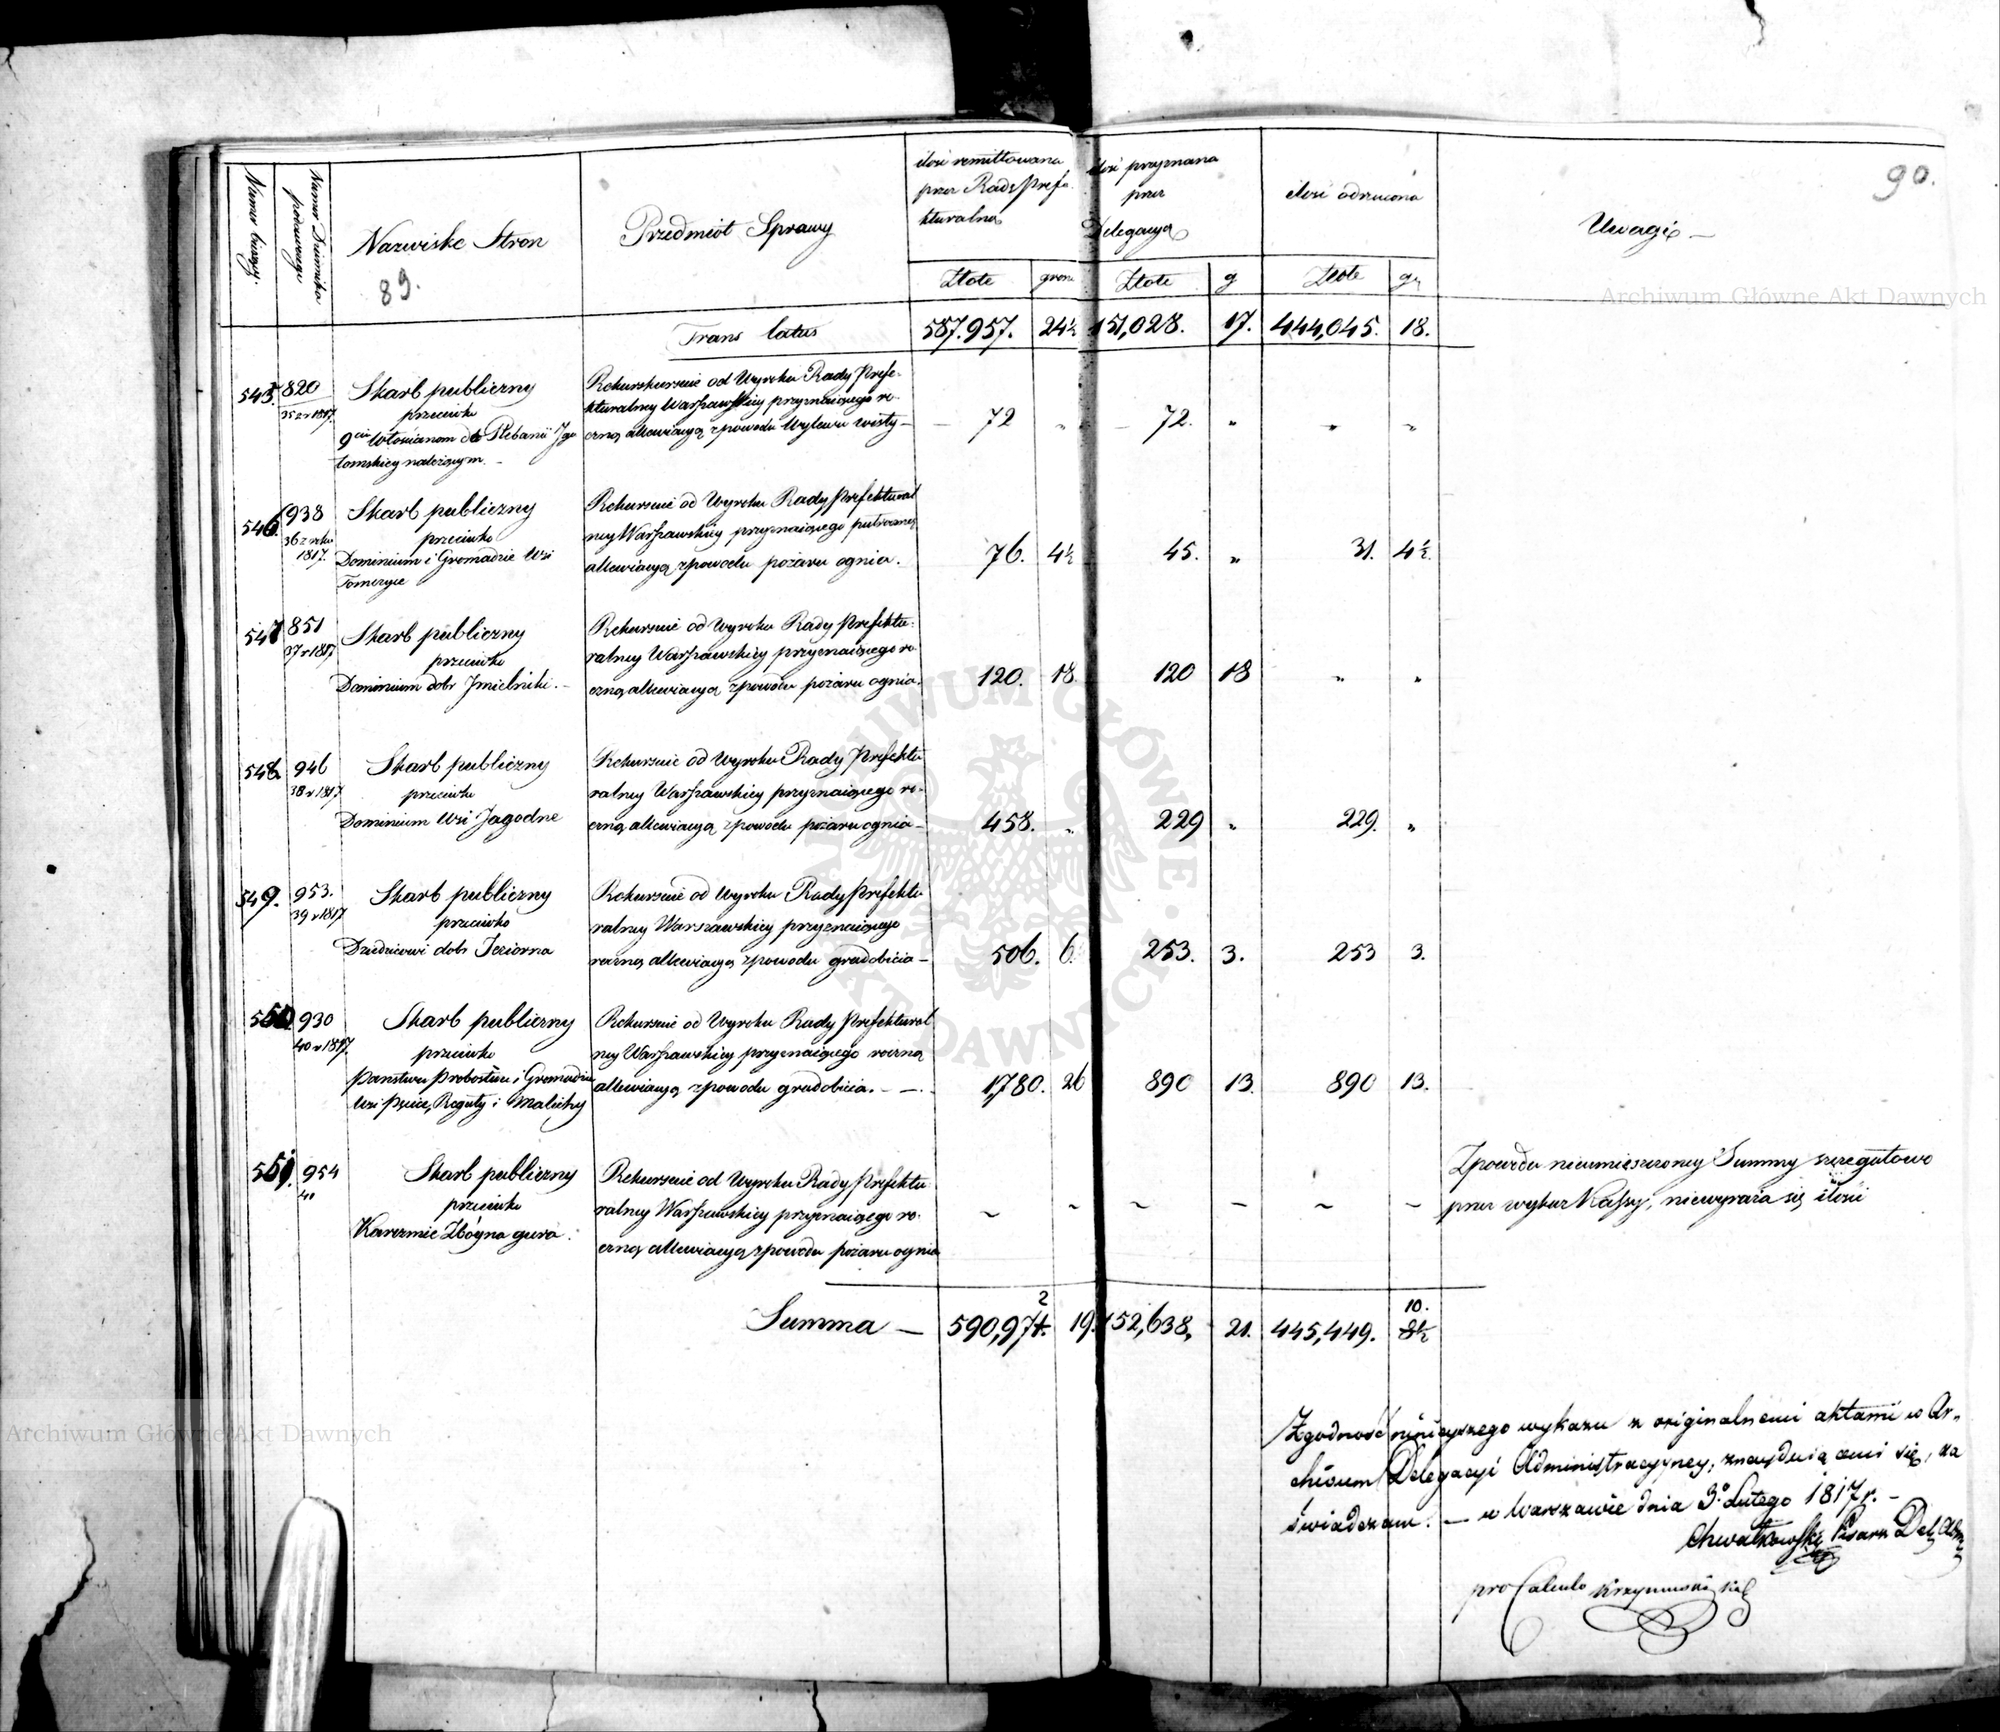 90.
Numer bieżący.
Numer Dziennika
podawczego
Nazwiske Stron
89.
Przedmiot Sprawy
ilość remittowana
przez Radę Prefe-
kturalną
ilość przyznana
przez
Delegacyą
ilość odrzucona
Uwagi —
Złote grosze Złote g Złote gr
Archiwum Główne Akt Dawnych
Trans latus 587.957. 24½ 151,028. 17. 444,045. 18.
545. 820
35 z r 1817.
Skarb publiczny
przeciwko
9ciu Włościanom do Plebanii Igo
łomskiey należącym. —
Rekurs od Wyroku Rady Prefe-
kturalney Warszawskiey przyznaiącego ro-
czną allewiacyą z powodu Wylewu wisły —
— 72 „ — 72. „ „ „
546. 938
36 z roku
1817.
Skarb publiczny
przeciwko
Dominium i Gromadzie Wsi
Tomczyce
Rekursuie od Wyroku Rady Prefektural
ney Warszawskiey przyznaiącego putroczną
allewiacyą z powodu pożaru ognia.
76. 4½ 45. „ 31. 4½.
547 851
37 r 1817
Skarb publiczny
przeciwko
Dominium dobr Jmielniki. —
Rekursuie od Wyroku Rady Prefektu-
ralney Warszawskiey przyznaiącego ro-
czną allewiacyą z powodu pożaru ognia.
120. 18. 120 18 „ „
548. 946
38 r 1817
Skarb publiczny
przeciwko
Dominium Wsi Jagodne
Rekursuie od Wyroku Rady Prefektu
ralney Warszawskiey przyznaiącego ro-
czną allewiacyą z powodu pożaru ognia —
458. „ 229 „ 229. „
549. 953.
39 r 1817
Skarb publiczny
przeciwko
Dziedzicowi dobr Jeziorna
Rekursuie od Wyroku Rady Prefektu
ralney Warszawskiey przyznaiącego
roczną allewiacyą z powodu gradobicia —
506. 6. 253. 3. 253 3.
550. 930
40 r 1817.
Skarb publiczny
przeciwko
Państwu Probostwu i Gromadzie
Wsi Pęcice, Reguły i Malichy
Rekursuie od Wyroku Rady Prefektural
ney Warszawskiey przyznaiącego roczną
allewiacyą z powodu gradobicia. — —
1,780. 26 890 13. 890 13.
551. 954
41
Skarb publiczny
przeciwko
Karczmie Zbóyna gura.
Rekursuie od Wyroku Rady Prefektu
ralney Warszawskiey przyznaiącego ro-
czną allewiacyą z powodu pożaru ognia
~ ~ ~ — ~ ~
Zpowodu nieumieszczoney Summy szczegułowo
przez wykaz Kassy, niewyraża się ilość
Summa — 590,971. 19. 152,638, 21. 445,449. 8½
2
10.
Zgodność ninieyszego wykazu z originalnemi aktami w Ar-
chiwum Delegacyi Administracyyney, znayduią cemi się, za
świadczam. — w Warszawie dnia 3° Lutego 1817 r. —
Chwatkowski Pisarz Del. Adm
pro Calculo Krzymuski
ARCHIWUM GŁÓWNE AKT DAWNYCH
Archiwum Główne Akt Dawnych